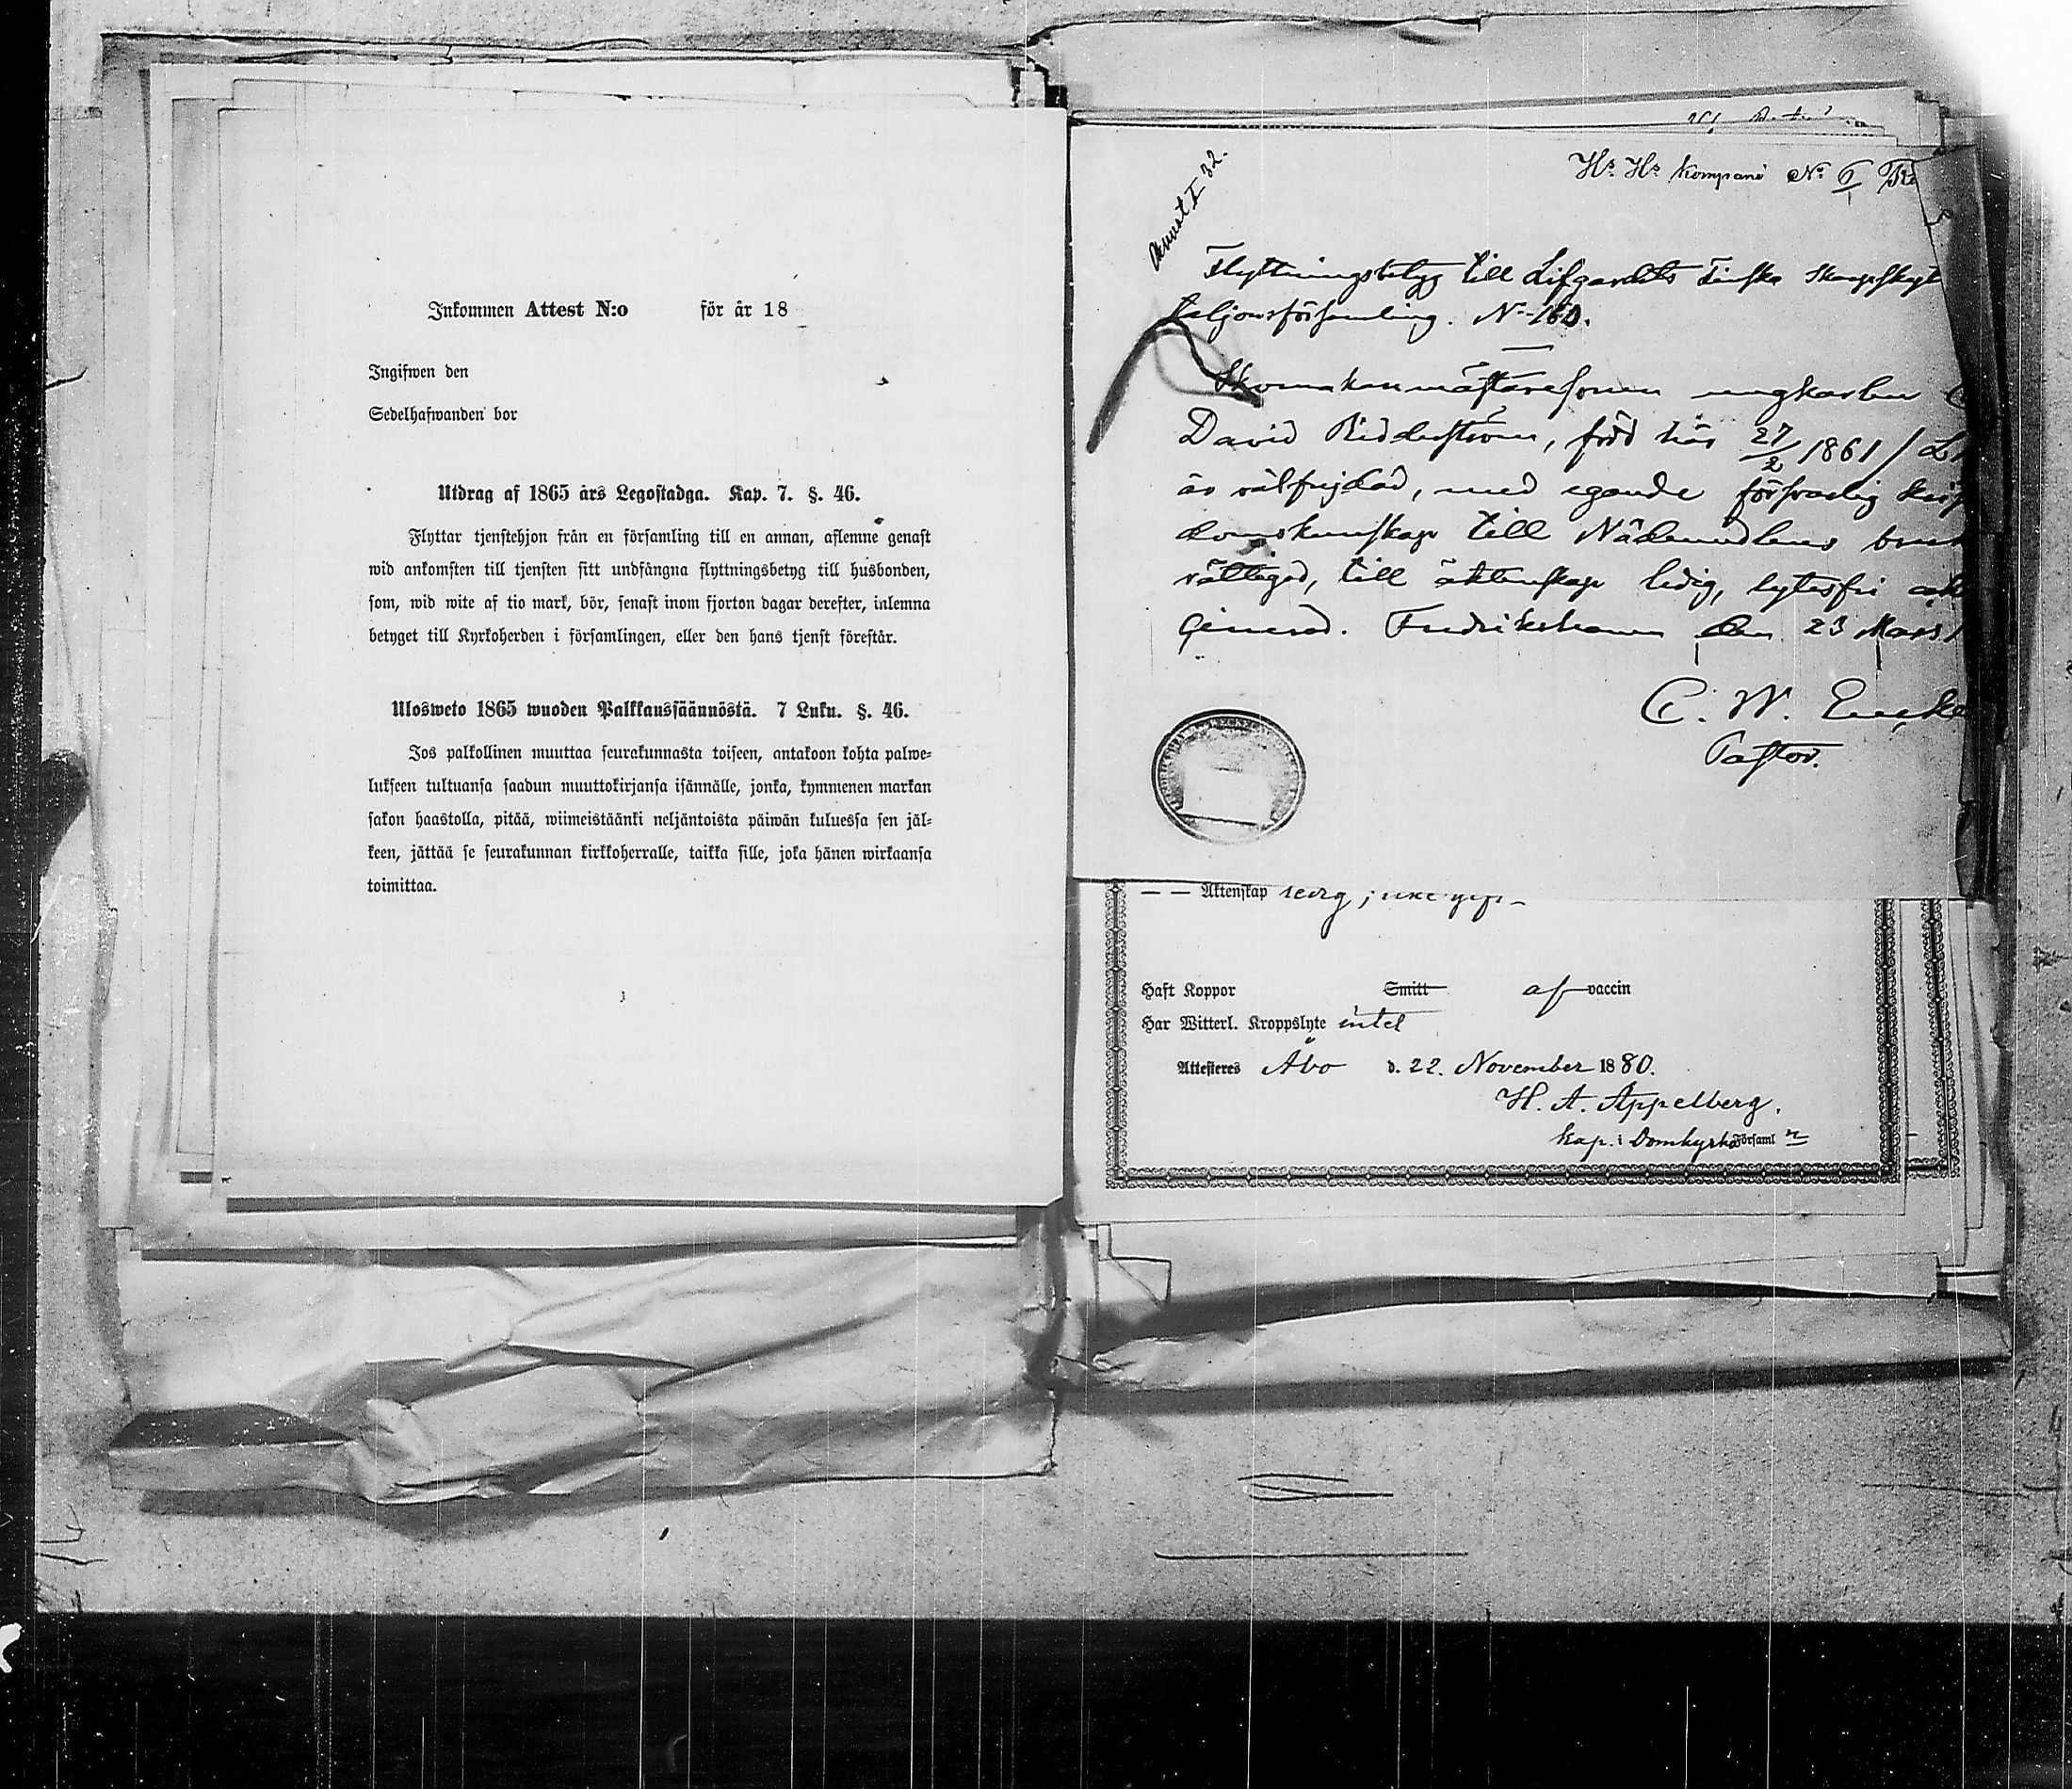 Inkommen Attest N:o för år 18
Ingifwen den
Sedelhafwanden bor
Utdrag af 1865 års Legostadga. Kap. 7. §. 46.
Flyttar tjenstehjon från en församling till en annan, aflemne genast
wid ankomsten till tjensten sitt undfångna flyttningsbetyg till husbonden,
som, wid wite af tio mark, bör, senast inom fjorton dagar derefter, inlemna
betyget till Kyrkoherden i församlingen, eller den hans tjenst förestår.
Ulosweto 1865 wuoden Palkkaussäännöstä. 7 Luku. §. 46.
Jos palkollinen muuttaa seurakunnasta toiseen, antakoon kohta palwe-
lukseen tultuansa saadun muuttokirjansa isännälle, jonka, kymmenen markan
sakon haastolla, pitää, wiimeistäänki neljäntoista päiwän kuluessa sen jäl-
keen, jättää se seurakunnan kirkkoherralle, taikka sille, joka hänen wirkaansa
toimittaa.
Hs. Hs. Kompani No. 6/1
Flyttningsbetyg till Lifgardets Finska Skarpskyt
taljonsförsamling. N 160.
Skomakaremästaresonen ungkarlen
David Ridderström, född här 27/2 1861 /
är välfrejdad, med egande försvarlig
domskunskap till Nådemedlens
rättigad, till äktenskap ledig, lytesfri
Gincerad. Fredrikshamn den 23 Mars
C. W. Encke
Pastor.
— — Aktenskap ledig, icke gift
Haft Koppor Smitt af vaccin
Har Witterl. Kroppslyte intet
Attesteres Åbo d. 22. November 1880.
H. A. Appelberg.
Kap. i Domkyrko Församl